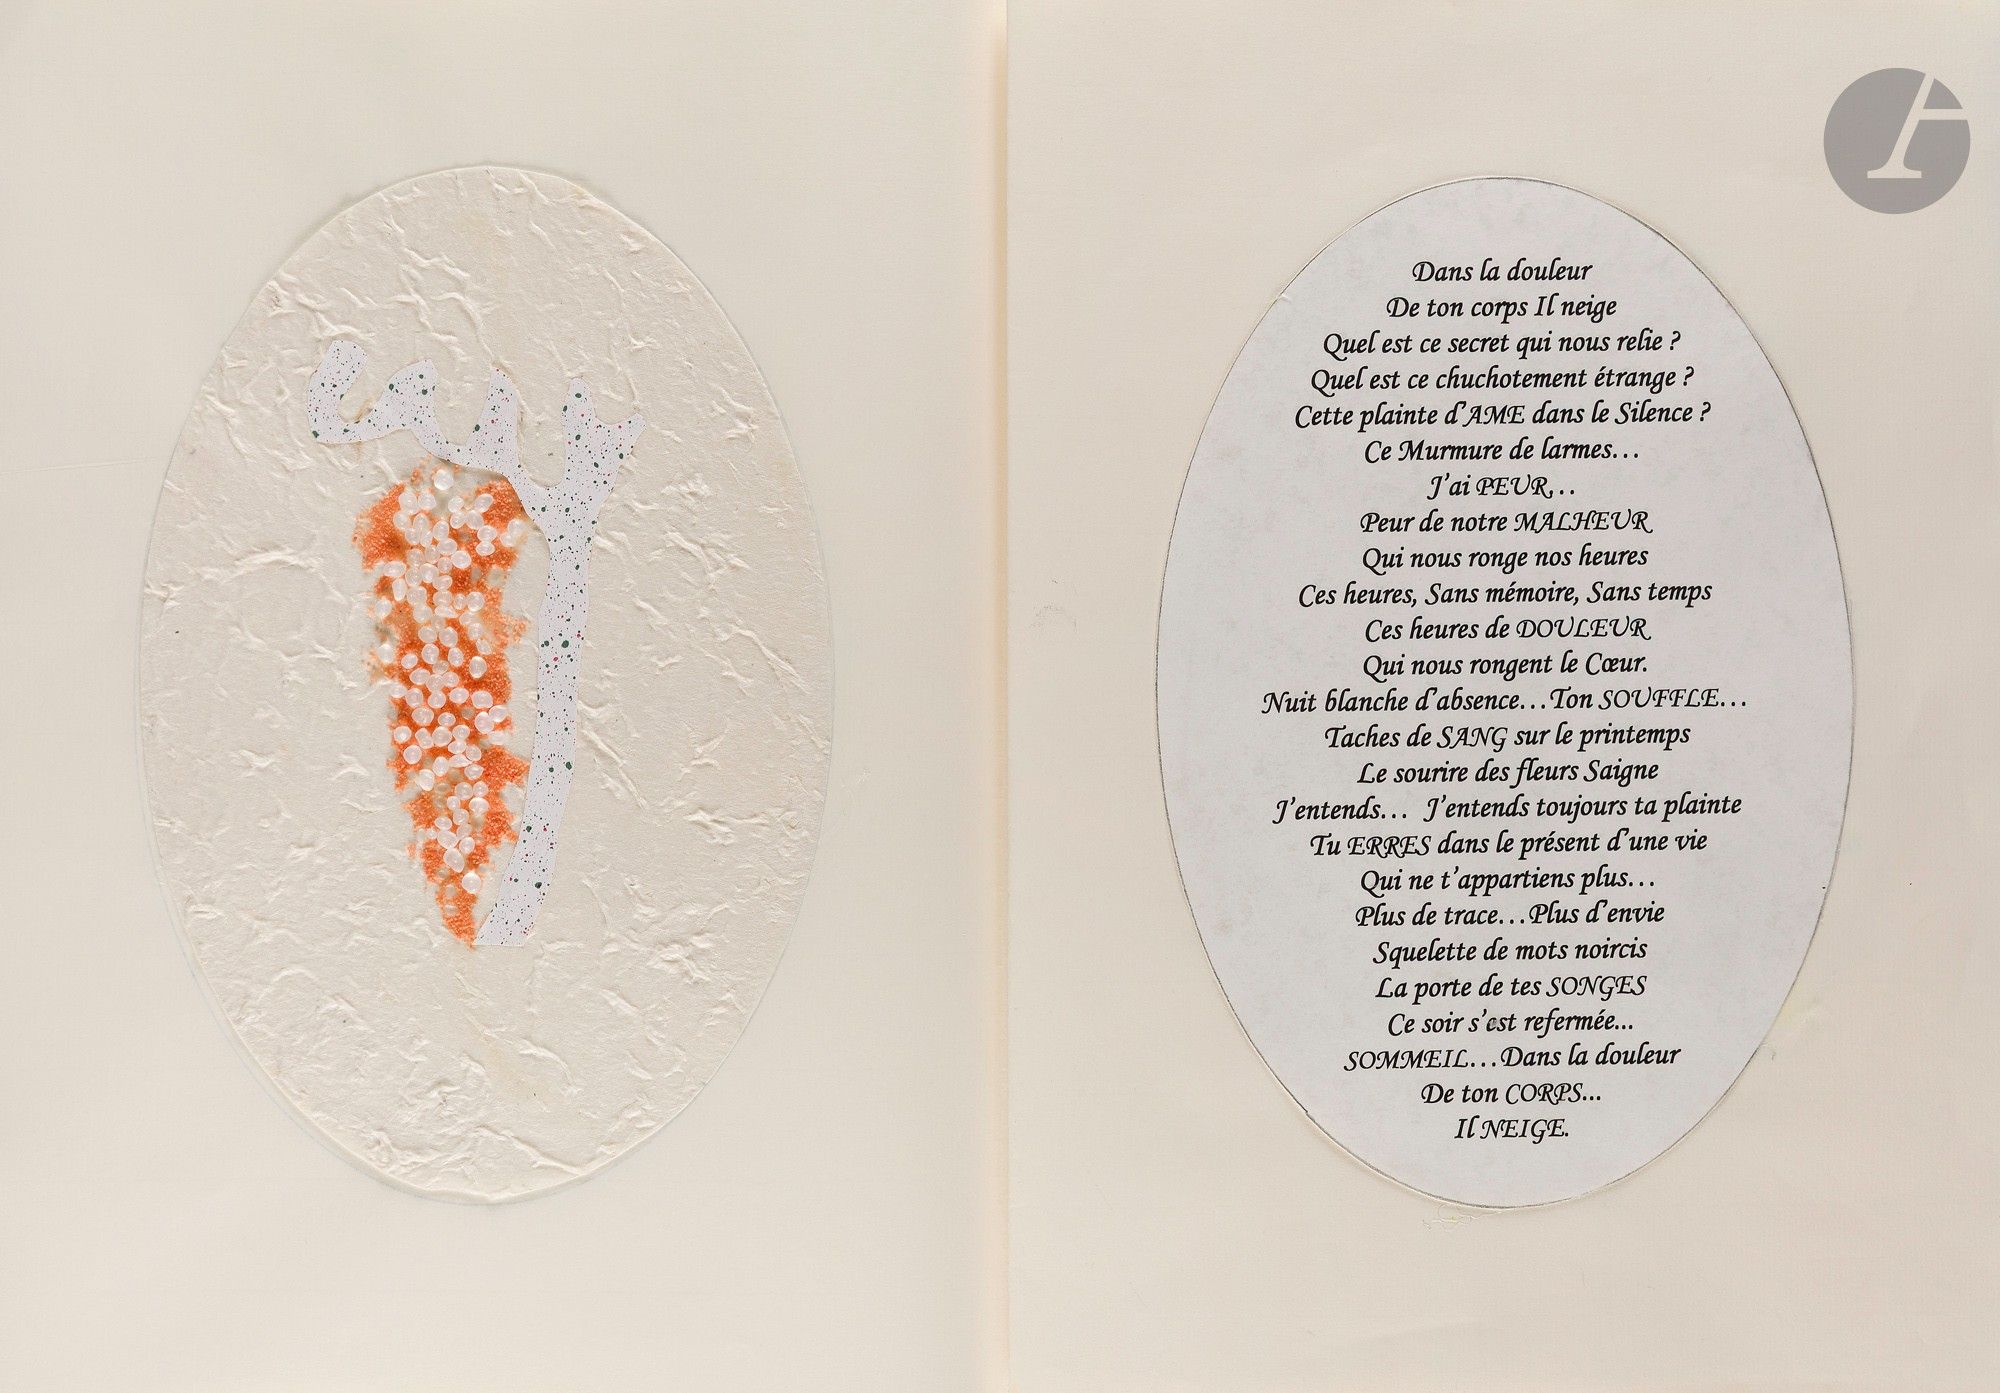 Dans la douleur
De ton corps Il neige
Quel est ce secret qui nous relie ?
Quel est ce chuchotement étrange ?
Cette plainte d'AME dans le Silence ?
Ce Murmure de larmes…
J'ai PEUR…
Peur de notre MALHEUR
Qui nous ronge nos heures
Ces heures, Sans mémoire, Sans temps
Ces heures de DOULEUR
Qui nous rongent le Cœur.
Nuit blanche d'absence…Ton SOUFFLE…
Taches de SANG sur le printemps
Le sourire des fleurs Saigne
J'entends… J'entends toujours ta plainte
Tu ERRES dans le présent d'une vie
Qui ne t'appartiens plus…
Plus de trace…Plus d'envie
Squelette de mots noircis
La porte de tes SONGES
Ce soir s'est refermée...
SOMMEIL…Dans la douleur
De ton CORPS...
Il NEIGE.